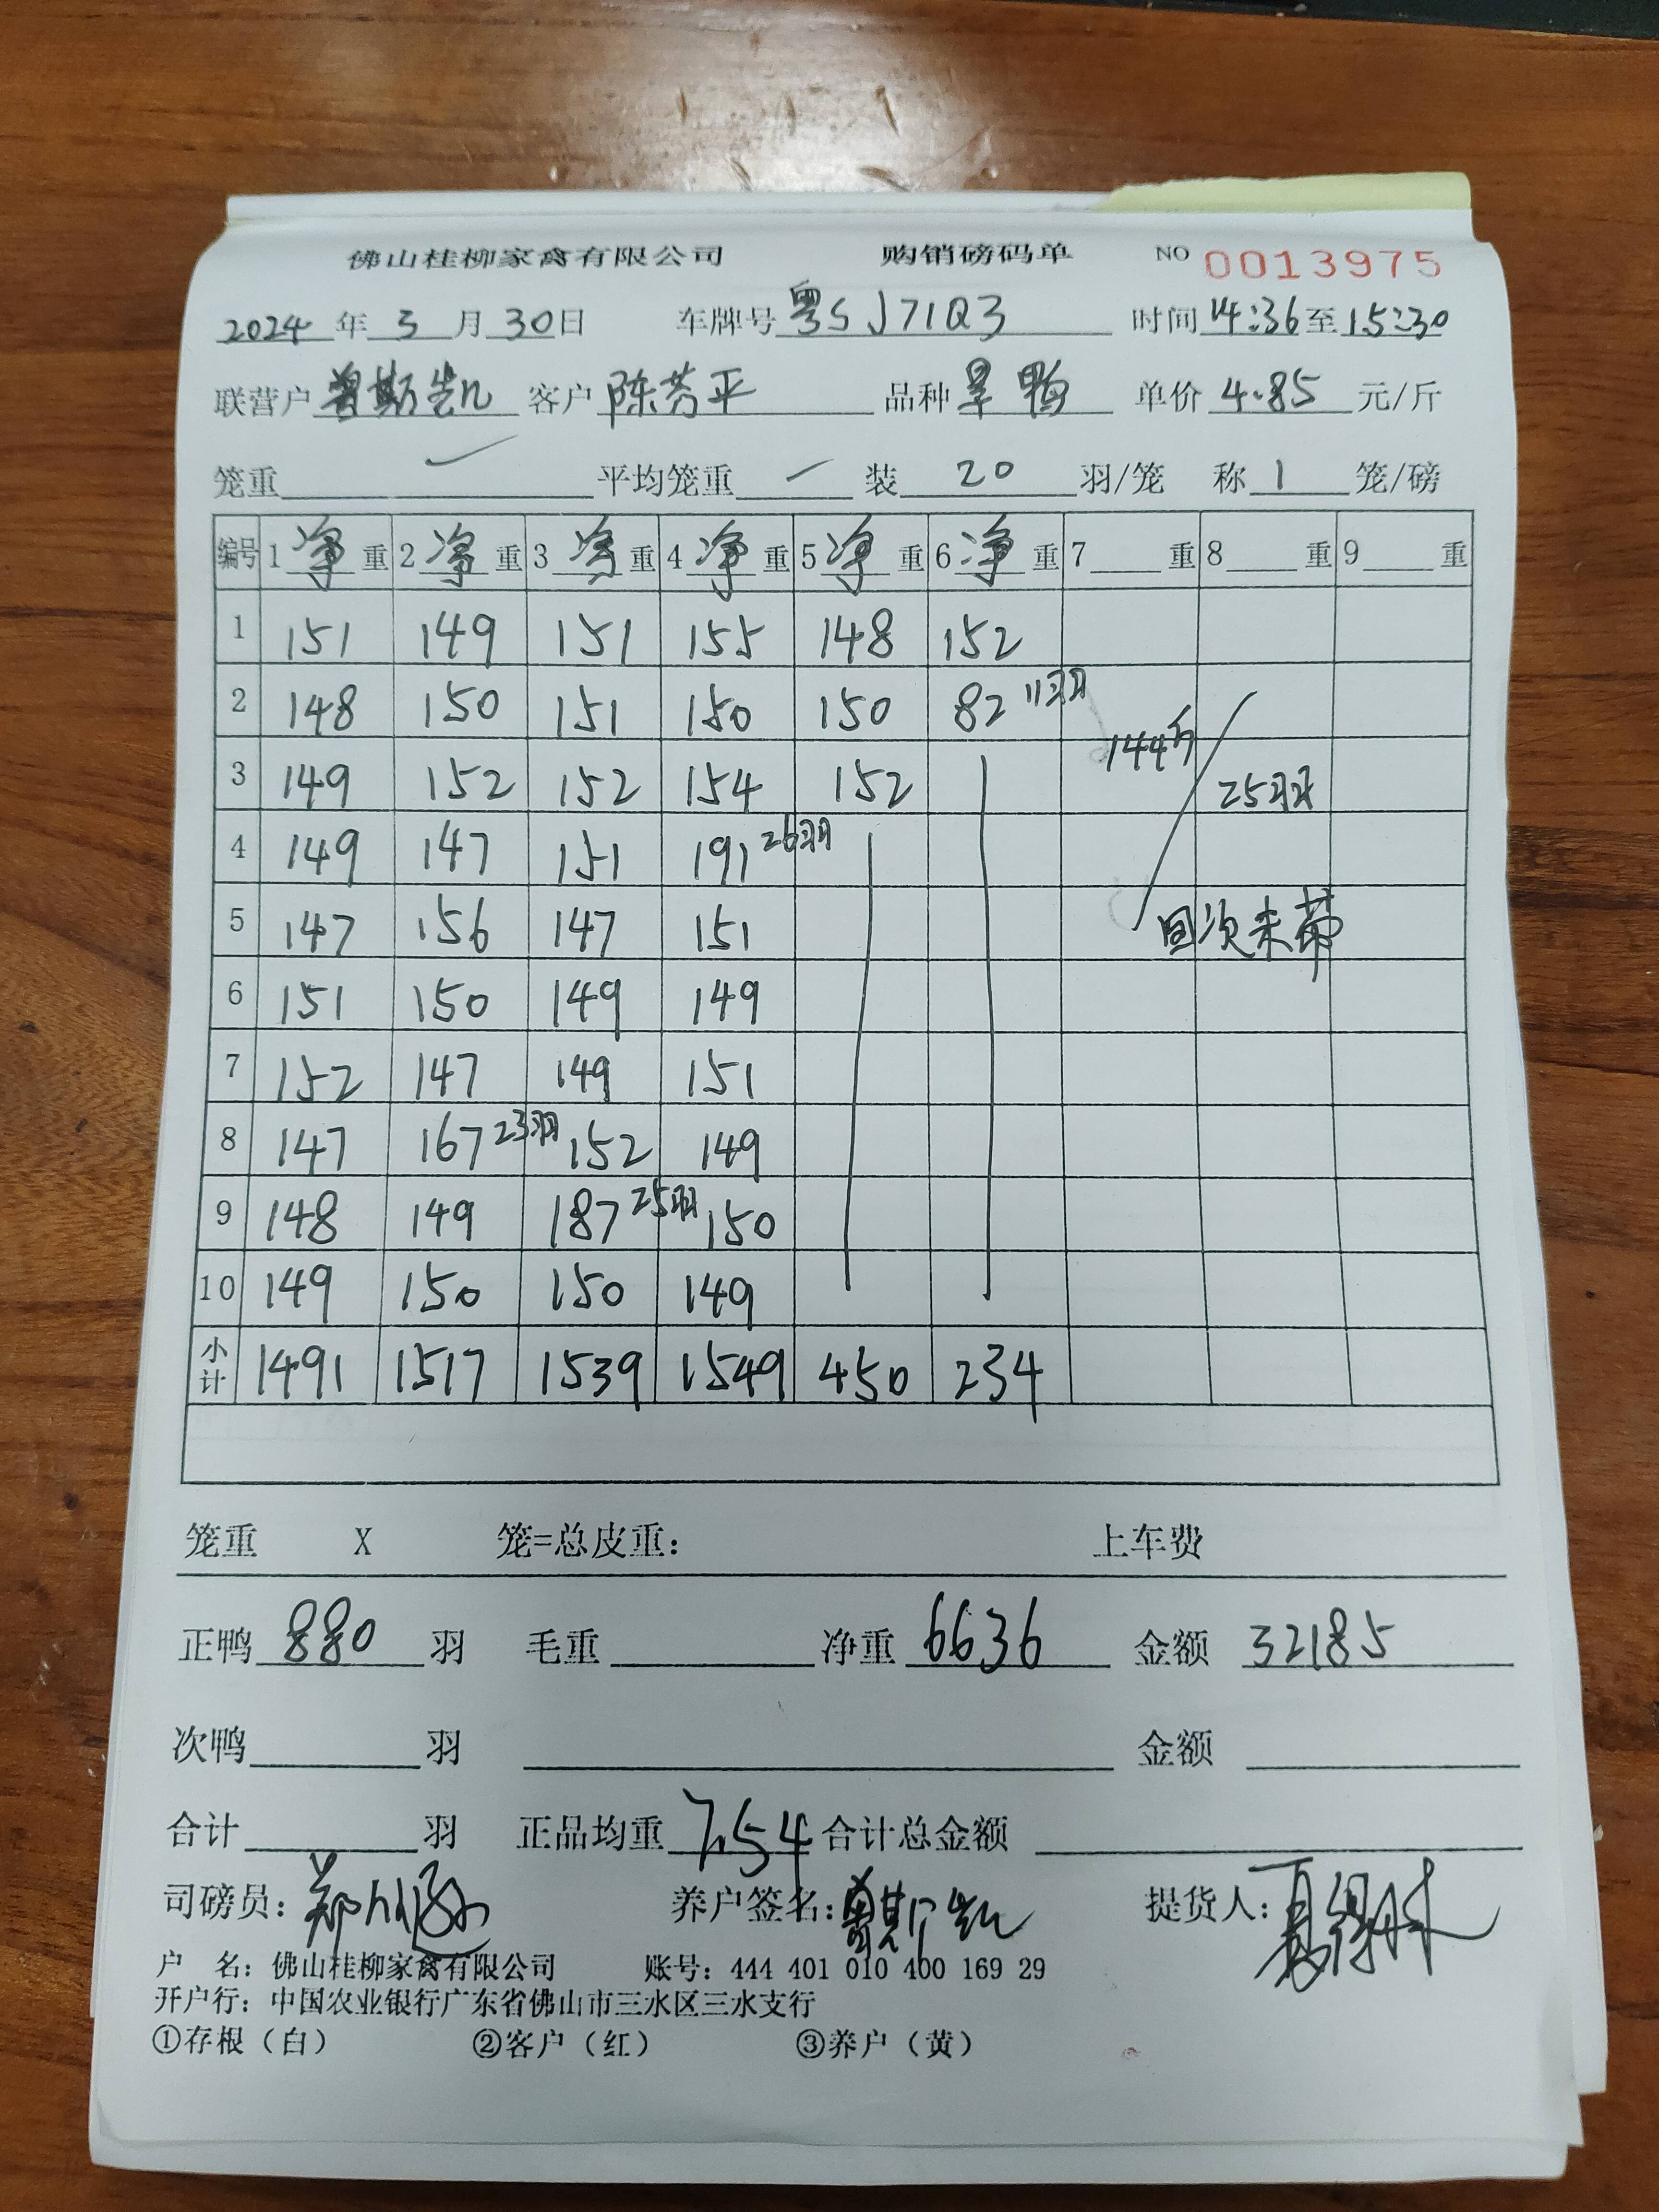 佛山桂柳家禽有限公司 购销磅码单 NO 0013975
2024年3月30日 车牌号粤SJ71Q3 时间14:36至15:30
联营户曾斯凯 客户陈芳平 品种旱鸭 单价4.85元/斤
笼重 平均笼重 装20羽/笼 称1笼/磅
编号 1净重 2净重 3净重 4净重 5净重 6净重 7重 8重 9重
1 151 149 151 155 148 152
2 148 150 151 150 150 82 11羽
144斤
3 149 152 152 154 152
25羽
4 149 147 151 191 26羽
5 147 156 147 151
回次未带
6 151 150 149 149
7 152 147 149 151
8 147 167 23羽 152 149
9 148 149 187 25羽 150
10 149 150 150 149
小计 1491 1517 1539 1549 450 234
笼重 X 笼=总皮重: 上车费
正鸭880羽 毛重 净重6636 金额32185
次鸭 羽 金额
合计 羽 正品均重7.54 合计总金额
司磅员:郑 养户签名:曾斯凯 提货人:
户 名:佛山桂柳家禽有限公司 账号:444 401 010 400 169 29
开户行:中国农业银行广东省佛山市三水区三水支行
①存根(白) ②客户(红) ③养户(黄)